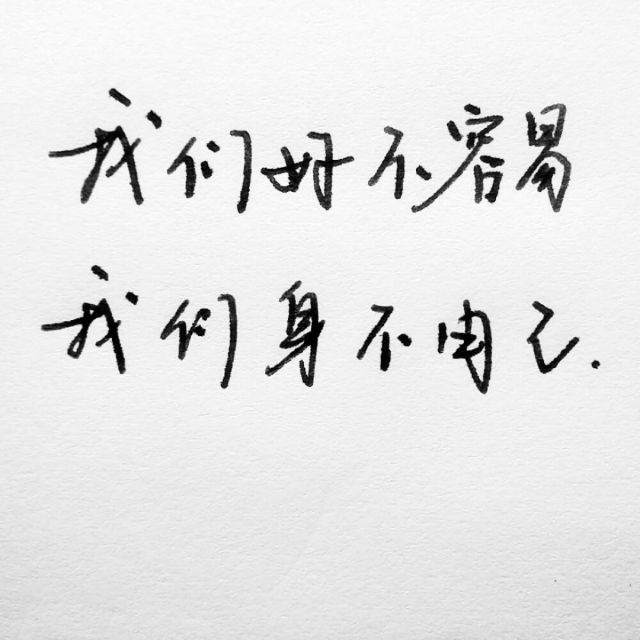 我们好不容易
我们身不由己.